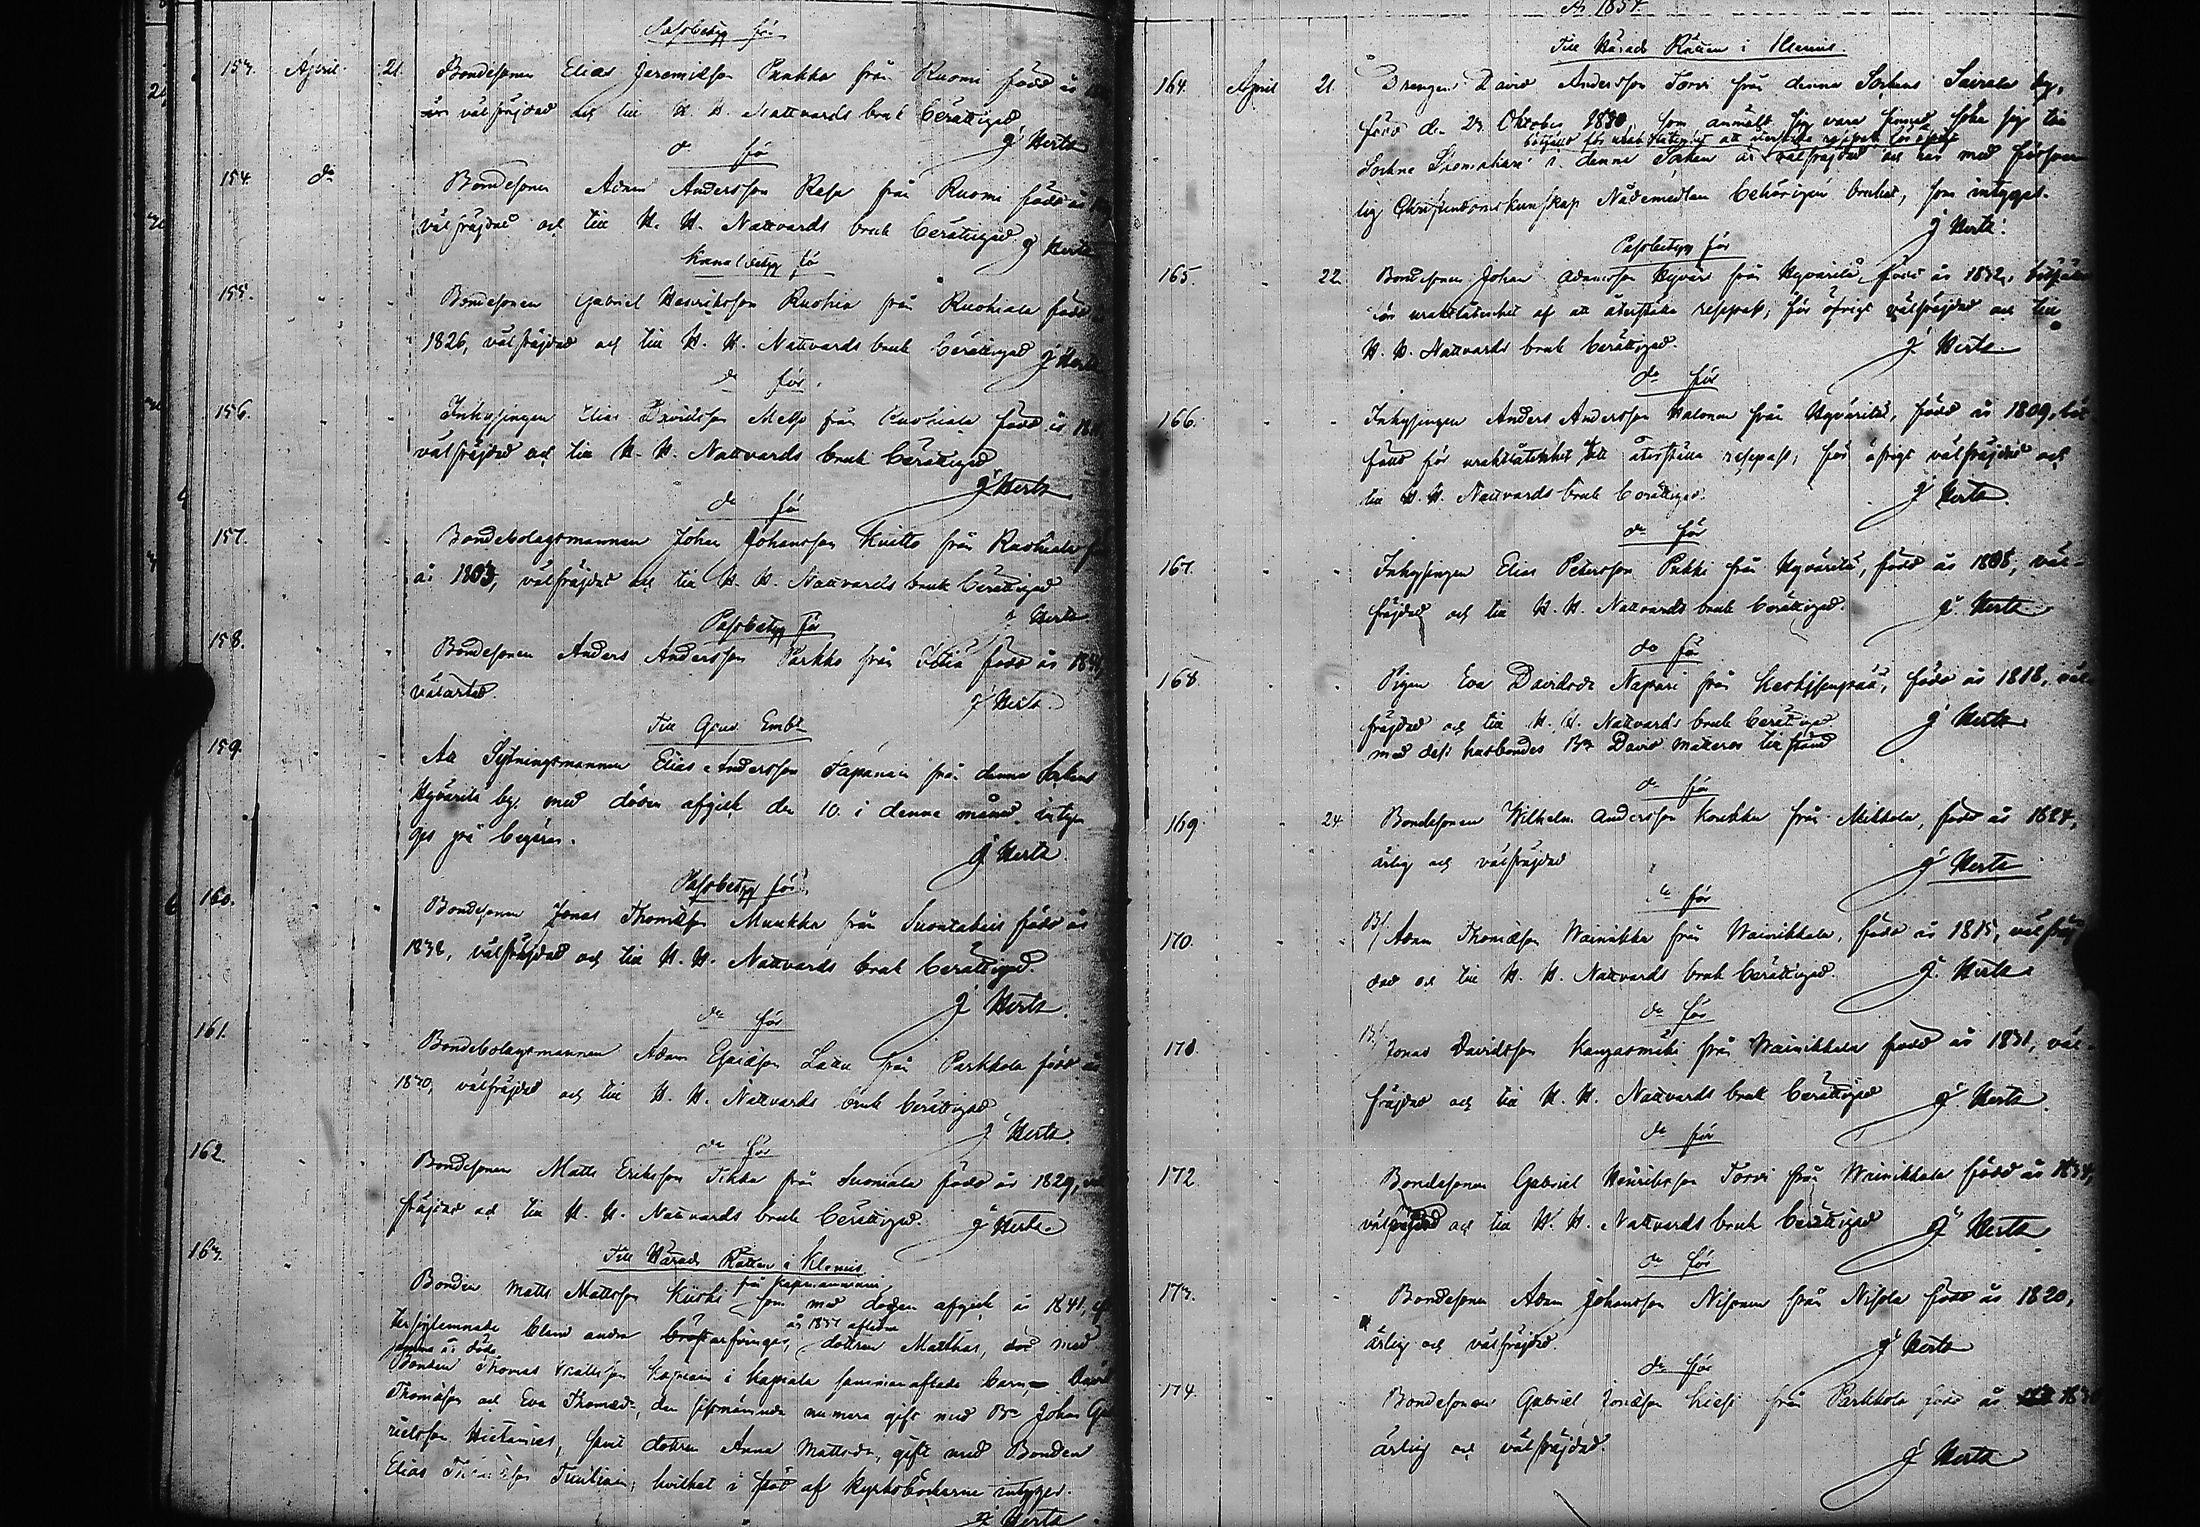 Passbetyg för
153. April 21. Bondesonen Elias Jeremiæson Punkka från Ruomi född år
är välfräjdad och till H. H. Nattvards bruk berättigad
J Herts
do för
154. do Bondesonen Adam Andersson Rasa från Ruomi född år
välfräjdad och till H. H. Nattvards bruk berättigad. J Herts
betyg för
155. Bondesonen Gabriel Henriksson Ruohia från Ruohiala född
1826, välfräjdad och till H. H. Nattvards bruk berättigad J Herts
do för
156. Inhysingen Elias Davidsson Melto från Ruohiala född år
välfräjdad och till H. H. Nattvards bruk berättigad
J Herts
do för
157. Bondebolagsmannen Johan Johansson Kuitto från Ruohiala
år 1803, välfräjdad och till H. H. Nattvards bruk berättigad
J Herts
Passbetyg för
158. Bondesonen Anders Andersson Parkko från född år
välartad. J Herts
Till Emb
159. Att Sytningsmannen Elias Andersson Tapanain från denna Sockens
Hyväristä by, med döden afgick den 10. i denna månad, inty-
ges på begäran. J Herts
Passbetyg för
160. Bondesonen Jonas Thomæson Muukka från född år
1832, välfräjdad och till H. H. Nattvards bruk berättigad.
J Herts
do för
161. Bondebolagsmannen Adam Esaiæson Lattu från Parkkola född år
1830, välfräjdad och till H. H. Nattvards bruk berättigad
J Herts
do för
162. Bondesonen Matts Eriksson Tikka från född år 1829,
fräjdad och till H. H. Nattvards bruk berättigad. J Herts
Till Härads Rätten i Klemis
163. Bonden Matts Mattsson Kuoki som med döden afgick år 1841,
efterlemnade bland andra bröstarfvingar, år 1837 aflidne dottren Marthas, död med
samma år döde
Bonden Thomas i sammanaflade barn, David
Thomæson och Eva Thomædr, den sistnämnda numera gift med Bn Johan
samt dottren Anna Mattsdr, gift med Bonden
Elias Thomæson hvilket i stöd af kyrkoböckerna intygas.
J Herts
År 1854.
Till Härads Rätten i Klemis.
164. April 21. Drengen David Andersson Torvi från denna Sockens Suirala by,
född den 23 Oktober 1830, som anmält sig vara sinnad söka sig till
Sockne i denna Socken är välfräjdad och har med försvar-
lig Christendomskunskap Nådemedlen behörigen brukat, som intygas.
J Herts.
Passbetyg för
165. 22. Bondesonen Johan Adamsson Hyväri från Hyväristä, född år 1832, bötfälld
för uraktlåtenhet af att återställa resepass, för öfrigt välfräjdad och till
H. H. Nattvards bruk berättigad. J Herts
do för
166. Inhysingen Anders Andersson Halonen från Hyväristä, född år 1809, böt-
fälld för uraktlåtenhet att återställa resepass, för öfrigt välfräjdad och
till H. H. Nattvards bruk berättigad. J Herts
do för
167. Inhysingen Elias Petersson Pukki från Hyväristä, född år 1808, väl-
fräjdad och till H. H. Nattvards bruk berättigad. J. Herts
do för
168. Pigan Eva Davidsdr från född år 1818, väl-
fräjdad och till H. H. Nattvards bruk berättigad J Herts
med dess husbondes Bn David tillstånd
do för
169. 24. Bondesonen Wilhelm Andersson Koukka från Mikkola, född år 1824,
ärlig och välfräjdad J Herts
do för
170. Bs/ Adam Thomæson Wainikka från Wainikkala, född år 1815, välfräj-
dad och till H. H. Nattvards bruk berättigad. J. Herts
do för
171. Bs/ Jonas Davidsson Kangasmäki från Wainikkala född år 1831, väl-
fräjdad och till H. H. Nattvards bruk berättigad J. Herts
do för
172. Bondesonen Gabriel Henriksson Torvi från Wainikkala född år 1834,
välfräjdad och till H. H. Nattvards bruk berättigad J Herts
do för
173. Bondesonen Adam Johansson Nisonen från Nisola född år 1820,
ärlig och välfräjdad. J Herts
do för
174. Bondesonen Gabriel Jonæson från Parkkola född år
ärlig och välfräjdad. J Herts